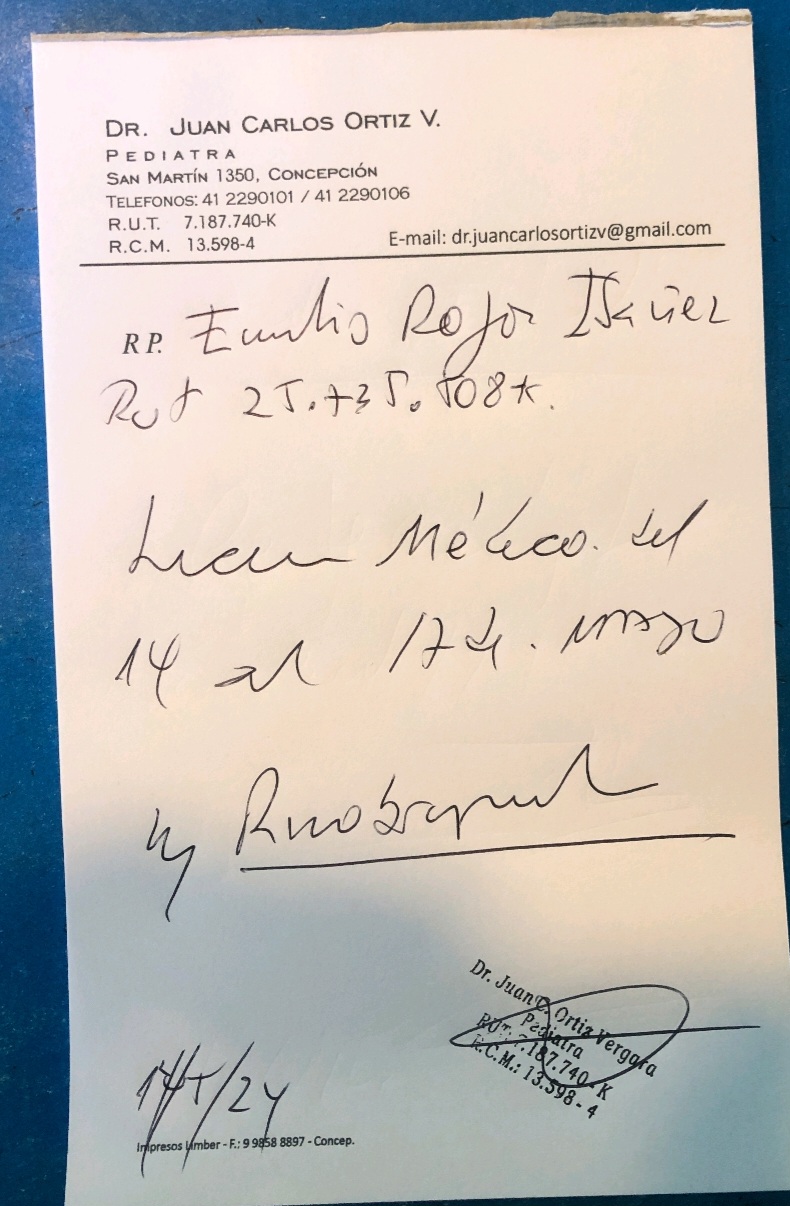 DR. JUAN CARLOS ORTIZ V.
PEDIATRA
SAN MARTÍN 1350, CONCEPCIÓN
TELEFONOS: 41 2290101 / 41 2290106
R.U.T. 7.187.740-K
R.C.M. 13.598-4
E-mail: dr.juancarlosortizv@gmail.com
RP. Emilio Rojas
Rut 25.735.508K.
Médico. del
14 al 17 de. mayo
14/5/24
Dr. Juan C. Ortiz Vergara
Pediatra
RUT: 7.187.740-K
R.C.M.: 13.598-4
Impresos Limber - F.: 9 9858 8897 - Concep.